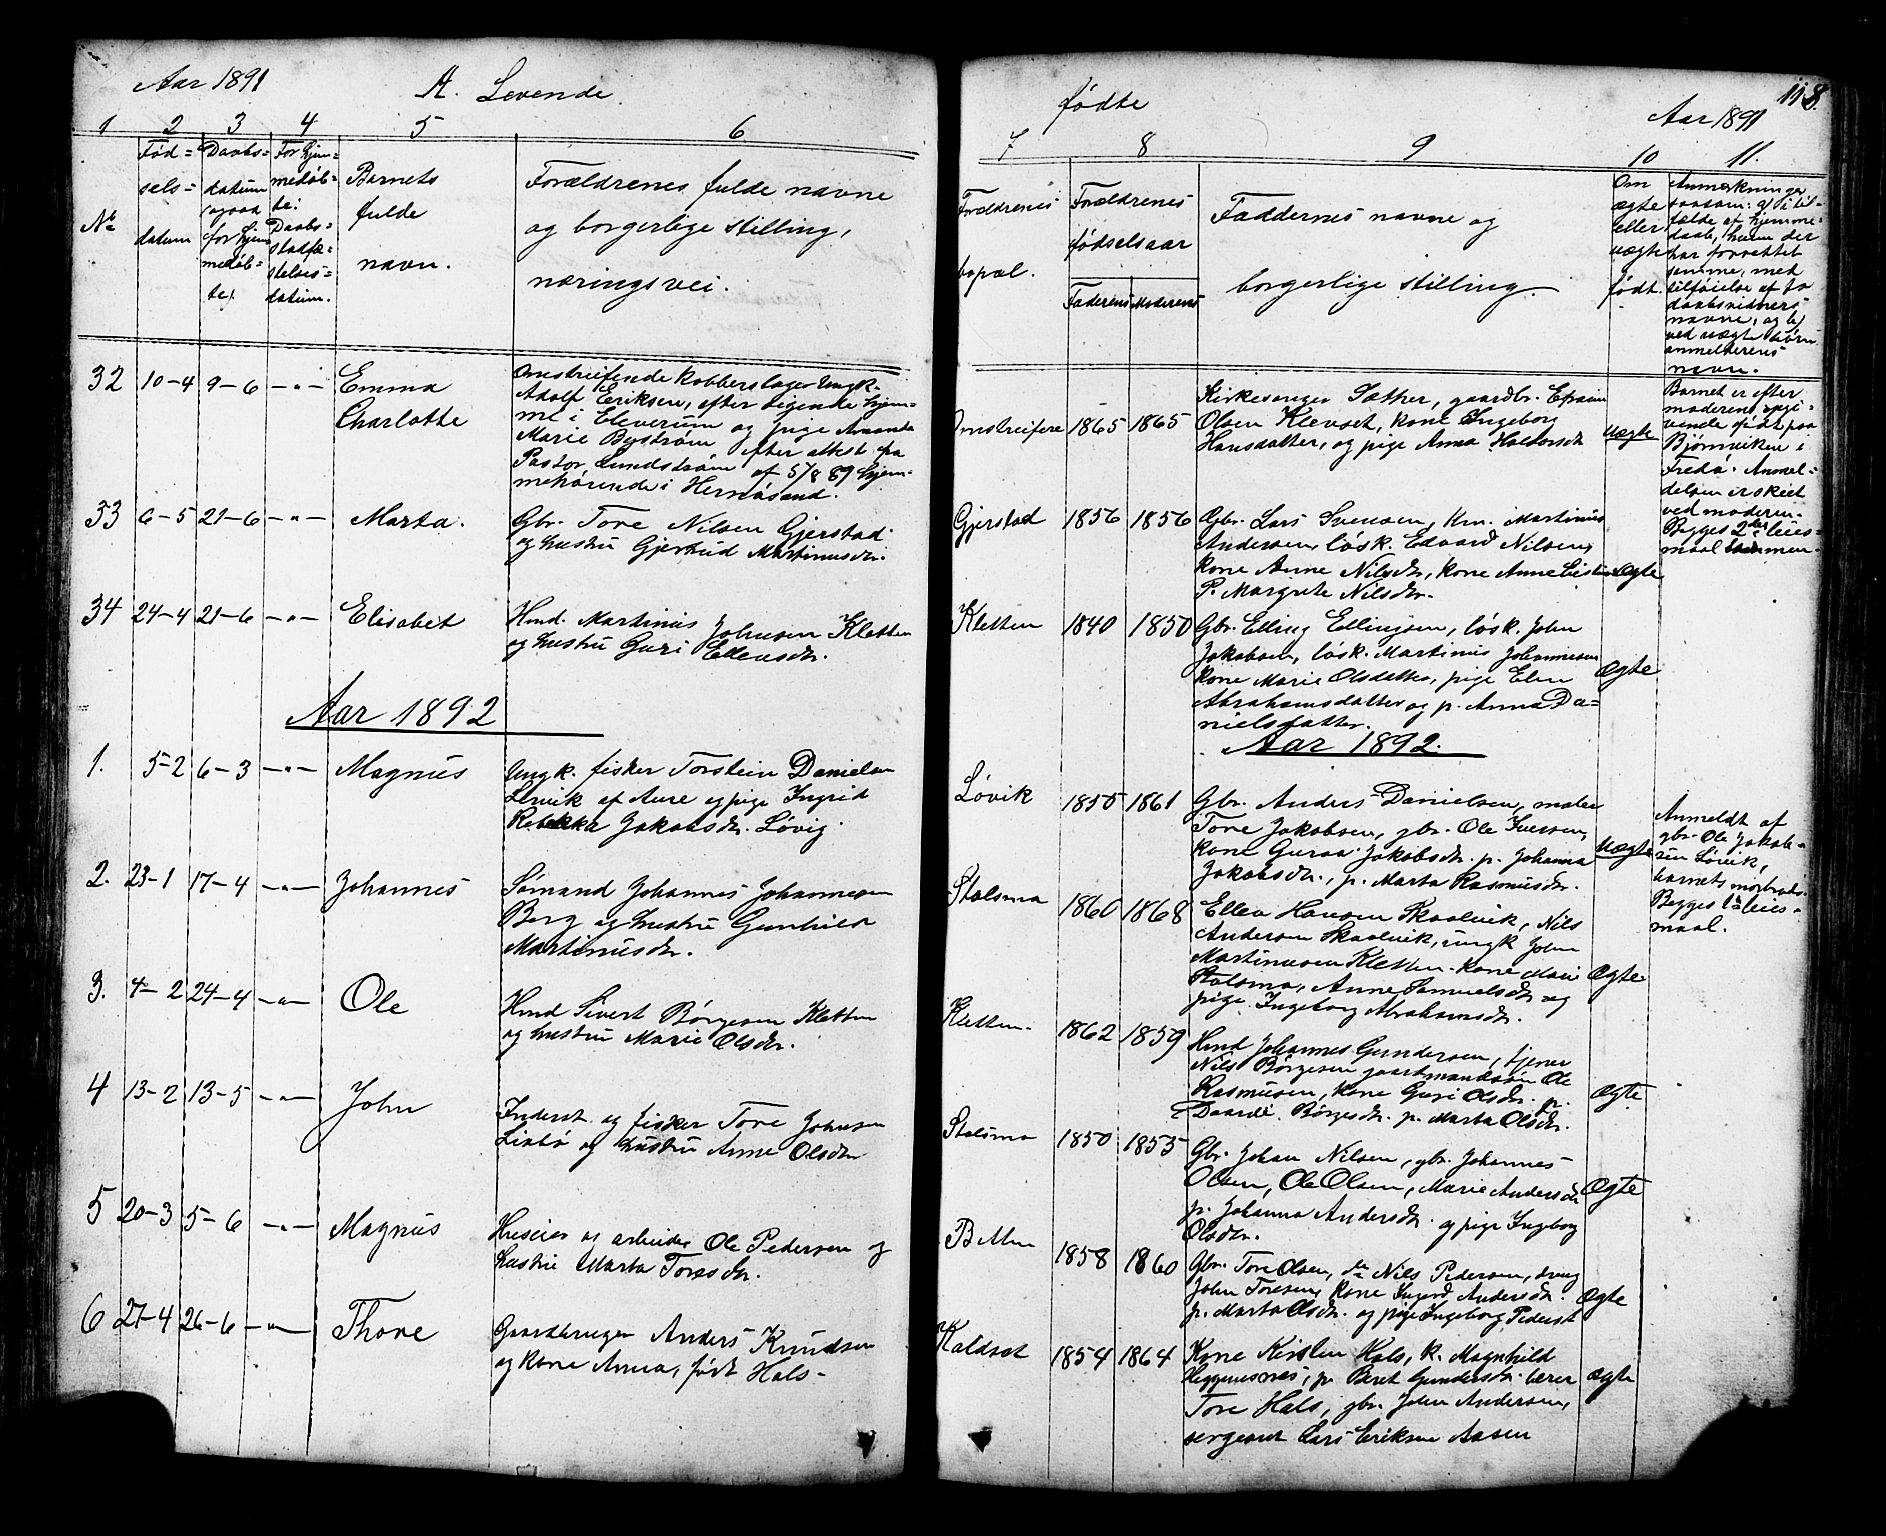 Aar 1891
A. Levende
1 2 3 4 5 6
Nº
Fød=
sels=
datum
Daabs=
datum
(ogsaa
for hjem
medøb-
te).
For hjem=
medøb=
te:
Daabs=
stadfæ=
stelses=
datum.
Barnets
fulde
navn.
Forældrenes fulde navne
og borgerlige stilling,
næringsvei.
32 10-4 9-6 -"-
Emma
Charlotte
Omstreifende kobberslager Ungk.
Adolf Eriksen, efter sigende hjem-
me i Elverum og pige Amanda
Marie Bystrøm efter attest fra
Pastor Lundstrøm af 5/8 89 hjem-
mehørende i Hernøsand.
33 6-5 21-6 -"- Marta.
Gbr. Tore Nilsen Gjerstad
og hustru Gjertrud Martinusdr.
34 24-4 21-6 -"- Elisabet
Hmd. Martinus Johnsen Kletten
og hustru Guri Ellensdr.
Aar 1892
1. 5-2 6-3 -"- Magnus
Ungk. fisker Torstein Danielsen
Lervik af Aure og pige Ingrid
Rebekka Jakobsdr. Løvig
2. 23-1 17-4 -"- Johannes
Sømand Johannes Johannesen
Berg og hustru Gunhild
Martinusdr.
3. 4-2 24-4 -"- Ole
Hmd Sivert Børgesen Kletten
og hustru Marie Olsdr.
4 13-2 13-5 -"- John
Inderst og fisker Tore Johnsen
og hustru Anne Olsdr
5 20-3 5-6 -"- Magnus
Huseier og arbeider Ole Pedersen og
hustru Marta Toresdr.
6 27-4 26-6 -"- Thore
Gaardbruger Anders Knudsen
og kone Anna, født Hals-
118.
fødte
Aar 1891
7 8 9 10 11.
Forældrenes
bopæl.
Forældrenes
fødselsaar
Faderens Moderens
Faddernes navne og
borgerlige stilling.
Om
ægte
eller
uægte
født.
Anmærkninger
saasom: a) i til-
fælde af hjemme-
daab, hvem der
har forrettet
samme, med
tilføielse af to
daabsvidners
navne, og b)
ved uægte børn
anmelderens
navn.
Omstreifere 1865 1865
Kirkesanger Sæther, gaardbr. Efraim
Olsen Klevset, kone Ingeborg
Hansdatter, og pige Anna Haldorsdr
Uægte
Barnet er efter
moderens opgi-
vende født paa
Bjørnviken i
Fredø. Anmel-
delsen er skeet
ved moderen.
Begges 2det leies-
maal sammen.
Gjerstad 1856 1856
Gbr. Lars Svensen, km. Martinus
Andersen, løsk. Edvard Nilsen,
kone Anne Nilsdr, kone Anne
P. Margrete Nilsdr.
Ægte
Kletten 1840 1850
Gbr. Elling Ellingsen, løsk. John
Jakobsen, løsk. Martinus Johannesen
kone Marie Olsdatter, pige Elen
Abrahamsdatter og p. Anna Da=
nielsdatter.
Ægte
Aar 1892.
Løvik 1855 1861
Gbr. Anders Danielsen, maler
Tore Jakobsen, gbr. Ole Iversen,
kone Guraa Jakobsdr. p. Johanna
Jakobsdr., p. Marta Rasmusdr.
Uægte
Anmeldt af
gbr. Ole Jakob-
sen Løvik,
barnets morbroder.
Begges 1ste leies-
maal.
Stolsmo 1860 1868
Ellev Hansen Skaalvik, Nils
Andersen Skaalvik, ungk John
Martinusen Kletten. kone Marie
Stolsmo, Anne Samuelsdr og
pige Ingeborg Abrahamsdr.
Ægte
Kletten. 1862 1859
Hmd Johannes Gundersen, tjener
Nils Børgesen gaardmandssøn Ole
Rasmusen, kone Guri Olsdr. p.
Børgesdr. p. Marta Olsdr.
Ægte
Stolsmo 1850 1853
Gbr. Johan Nilsen, gbr. Johannes
Olsen, Ole Olsen, Marie Andersdr
p. Johanna Andersdr. og pige Ingeborg
Olsdr.
Ægte
Betten 1858 1860
Gbr. Tore Olsen, do Nils Pedersen, dreng
John Toresen, kone Ingerd Andersdr.
p. Marta Olsdr. og pige Ingeborg Pedersd
Ægte
Koldset 1854 1864
Kone Kirsten Hals, k. Magnhild
Heggemsnes, p. Beret Gundersdr. lærer
Tore Hals, gbr. John Andersen,
sergeant Lars Eriksen Aasen
Ægte